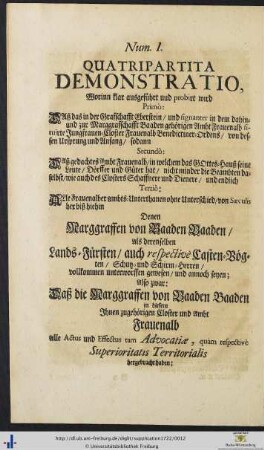 Num. I.
QUATRIPARTITA
DEMONSTRATIO,
Worinn klar ausgeführt und probirt wird
Primò:
Daß das in der Grafschafft Eberstein / und signanter in dem dahin-
und zur Marggrafschafft Baaden gehörigen Ambt Frauenalb si-
tuirte Jungfrauen-Closter Frauenalb Benedictiner-Ordens / von des-
sen Uhrsprung und Anfang / sodann
Secundò:
Daß gedachtes Ambt Frauenalb / in welchem das GOttes-Hauß seine
Leute / Dörffer und Güter hat / nicht minder die Beambten da-
selbst / wie auch des Closters Schaffnere und Dienere / und endlich
Tertiò:
Alle Frauenalber Ambts-Unterthanen ohne Unterschied / von Sæculis
her biß hiehin
Denen
Marggraffen von Baaden Baaden /
als derenselben
Lands-Fürsten / auch respectivè Casten-Vög-
ten / Schutz- und Schirm-Herren /
vollkommen unterworffen gewesen / und annoch seyen;
Also zwar:
Daß die Marggraffen von Baaden Baaden
in diesem
Ihnen zugehörigen Closter und Ambt
Frauenalb
alle Actus und Effectus tam Advocatiæ, quam respectivè
Superioritatis Territorialis
hergebracht haben;
http://dl.ub.uni-freiburg.de/diglit/supplication1722/0012
© Universitätsbibliothek Freiburg